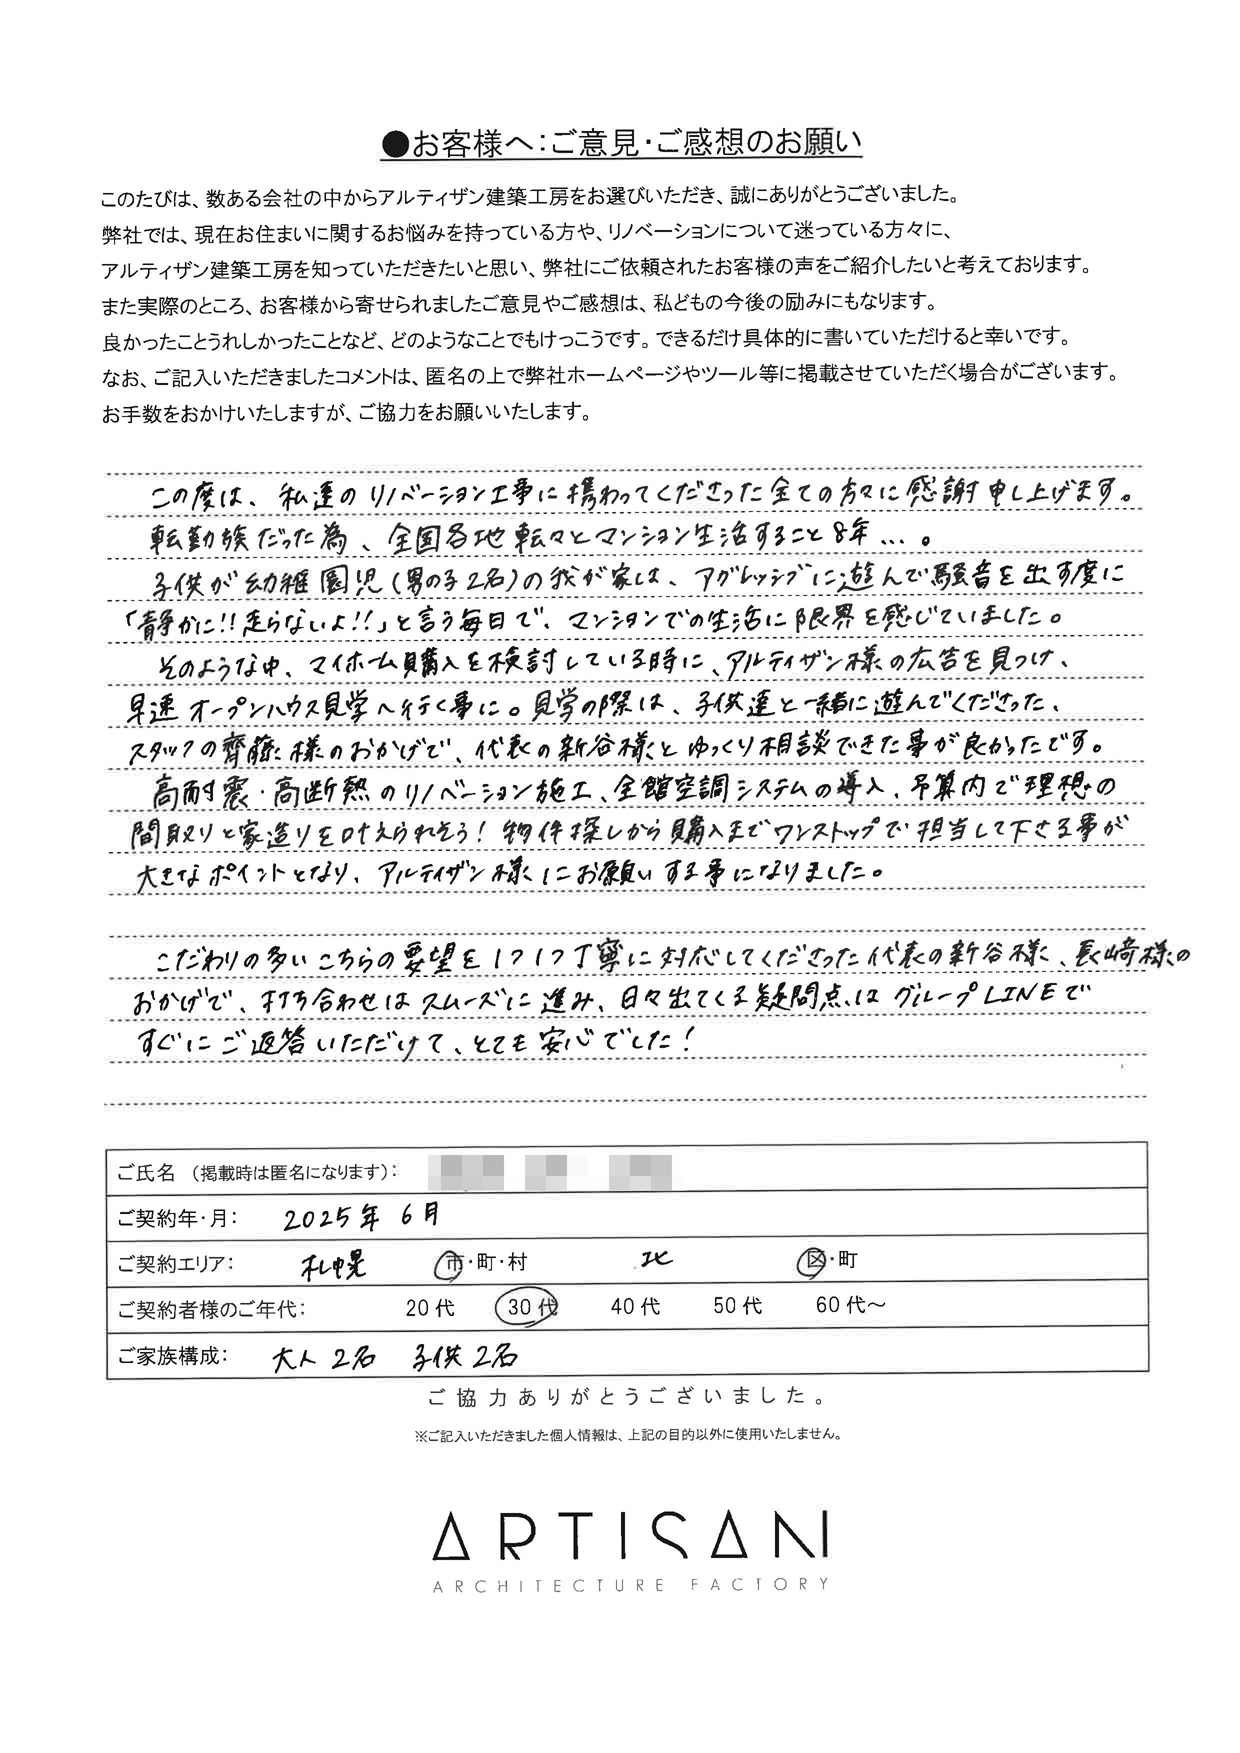 ●お客様へ:ご意見・ご感想のお願い
このたびは、数ある会社の中からアルティザン建築工房をお選びいただき、誠にありがとうございました。
弊社では、現在お住まいに関するお悩みを持っている方や、リノベーションについて迷っている方々に、
アルティザン建築工房を知っていただきたいと思い、弊社にご依頼されたお客様の声をご紹介したいと考えております。
また実際のところ、お客様から寄せられましたご意見やご感想は、私どもの今後の励みにもなります。
良かったことうれしかったことなど、どのようなことでもけっこうです。できるだけ具体的に書いていただけると幸いです。
なお、ご記入いただきましたコメントは、匿名の上で弊社ホームページやツール等に掲載させていただく場合がございます。
お手数をおかけいたしますが、ご協力をお願いいたします。
この度は、私達のリノベーション工事に携わってくださった全ての方々に感謝申し上げます。
転勤族だった為、全国各地転々とマンション生活すること8年…。
子供が幼稚園児(男の子2名)の我が家は、アグレッシブに遊んで騒音を出す度に
「静かに!!走らないよ!!」と言う毎日で、マンションでの生活に限界を感じていました。
そのような中、マイホーム購入を検討している時に、アルティザン様の広告を見つけ、
早速オープンハウス見学へ行く事に。見学の際は、子供達と一緒に遊んでくださった、
スタッフの齊藤様のおかげで、代表の新谷様とゆっくり相談できた事が良かったです。
高耐震・高断熱のリノベーション施工、全館空調システムの導入、予算内で理想の
間取りと家造りを叶えられそう!物件探しから購入までワンストップで担当して下さる事が
大きなポイントとなり、アルティザン様にお願いする事になりました。
こだわりの多いこちらの要望を1つ1つ丁寧に対応してくださった代表の新谷様、長崎様の
おかげで、打ち合わせはスムーズに進み、日々出てくる疑問点はグループLINEで
すぐにご返答いただけて、とても安心でした!
ご氏名 (掲載時は匿名になります):
ご契約年・月: 2025年 6月
ご契約エリア: 札幌 市・町・村 北 区・町
ご契約者様のご年代: 20代 30代 40代 50代 60代〜
ご家族構成: 大人2名 子供2名
ご協力ありがとうございました。
※ご記入いただきました個人情報は、上記の目的以外に使用いたしません。
ARTISAN
ARCHITECTURE FACTORY